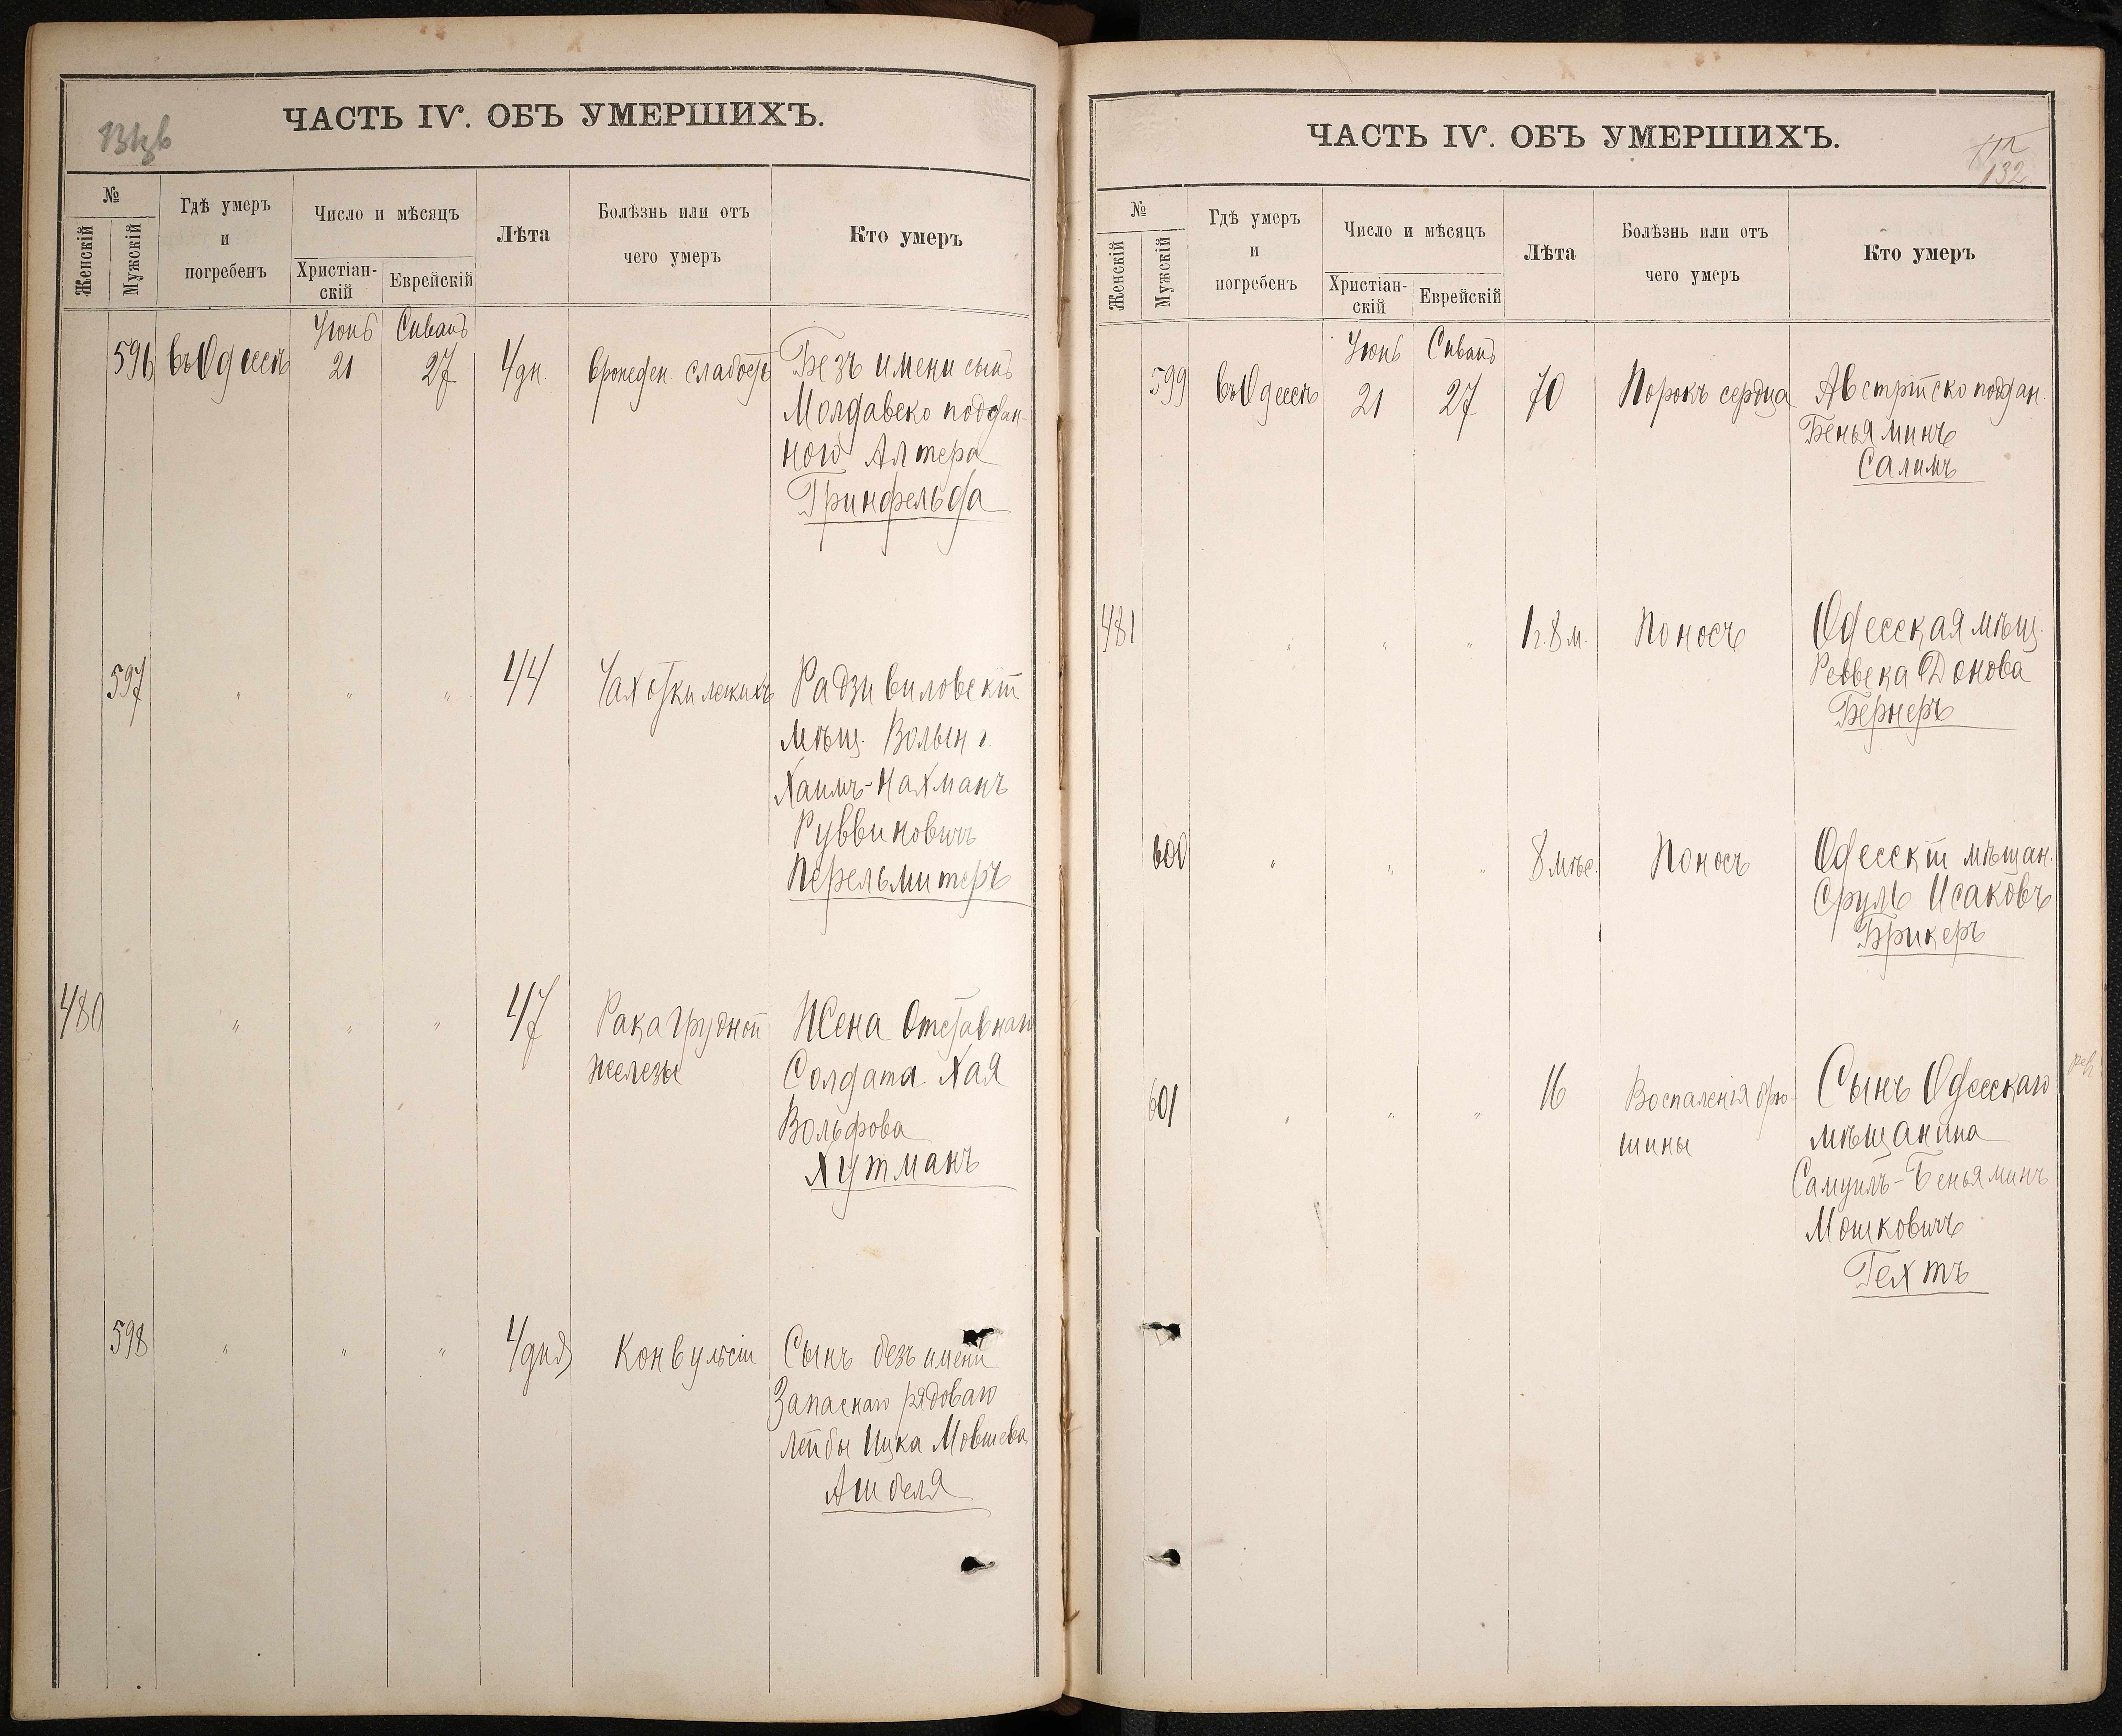 ЧАСТЬ IV. ОБЪ УМЕРШИХЪ.
№
Женскій
Мужскій
Гдѣ умеръ
и
погребенъ
Число и мѣсяцъ
Христіан-
скій
Еврейскій
Лѣта
Болѣзнь или отъ
чего умеръ
Кто умеръ
Іюнь Сиванъ
596 въ Одессѣ 21 27 4 дн. Врожден. слабость Безъ имени сынъ
Молдавско поддан-
ного Алтера
Гринфельда
597 " " " 44 Чахотки легкихъ Радзивиловскій
мѣщ. Волын. г.
Хаимъ-Нахманъ
Руввиновичъ
Перельмитеръ
480 " " " 47 Рака грудной Жена Отставнаго
железы Солдата Хая
Вольфова
Хутманъ
598 " " " 4 дня Конвульсіи Сынъ безъ имени
Запаснаго рядоваго
Лейбы Ицка Мовшева
Ашбеля
ЧАСТЬ IV. ОБЪ УМЕРШИХЪ.
132
№
Женскій
Мужскій
Гдѣ умеръ
и
погребенъ
Число и мѣсяцъ
Христіан-
скій
Еврейскій
Лѣта
Болѣзнь или отъ
чего умеръ
Кто умеръ
Іюнь Сиванъ
599 въ Одессѣ 21 27 70 Порокъ сердца Австрійско поддан.
Беньяминъ
Салимъ
481 " " " 1 г. 8 м. Поносъ Одесская мѣщ.
Реввека Донова
Бернеръ
600 " " " 8 мѣс. Поносъ Одесскій мѣщан.
Сруль Исаковъ
Брикеръ
601 " " " 16 Воспаленія брю- Сынъ Одесскаго
шины мѣщанина
Самуилъ-Беньяминъ
Мошковичъ
Гехтъ